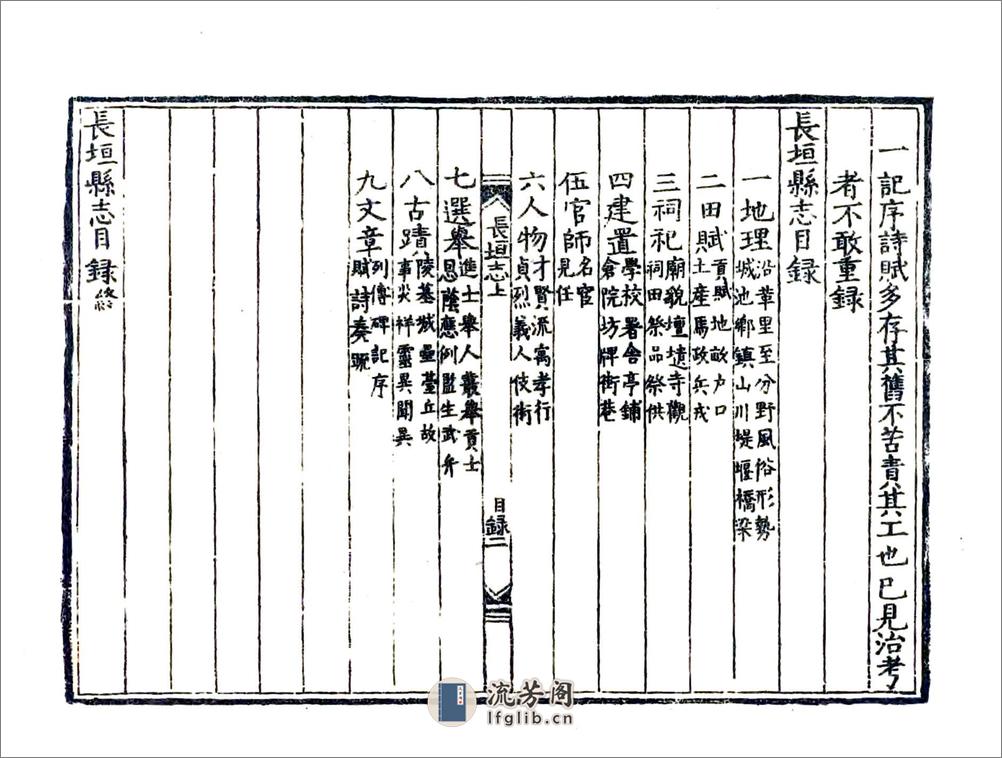 一記序詩賦多存其舊不苦責其工也已見治考
者不敢重録
長垣縣志目録
一地理
沿革里至分野風俗形勢
城池鄉鎮山川堤堰橋梁
二田賦
貢賦地畝户口
土産馬政兵戎
三祠祀
廟貌壇壝寺觀
祠田祭品祭供
四建置
學校署舍亭鋪
倉院坊牌街巷
伍官師
名宦
見任
六人物
才賢流寓孝行
貞烈義人伎術
長垣志上
目録二
七選舉
進士舉人薦舉貢士
恩蔭應例監生武弁
八古蹟
陵墓城壘臺丘故
事災祥靈異聞異
九文章
列傳碑記序
賦詩奏疏
長垣縣志目録終
流芳阁
lfglib.cn